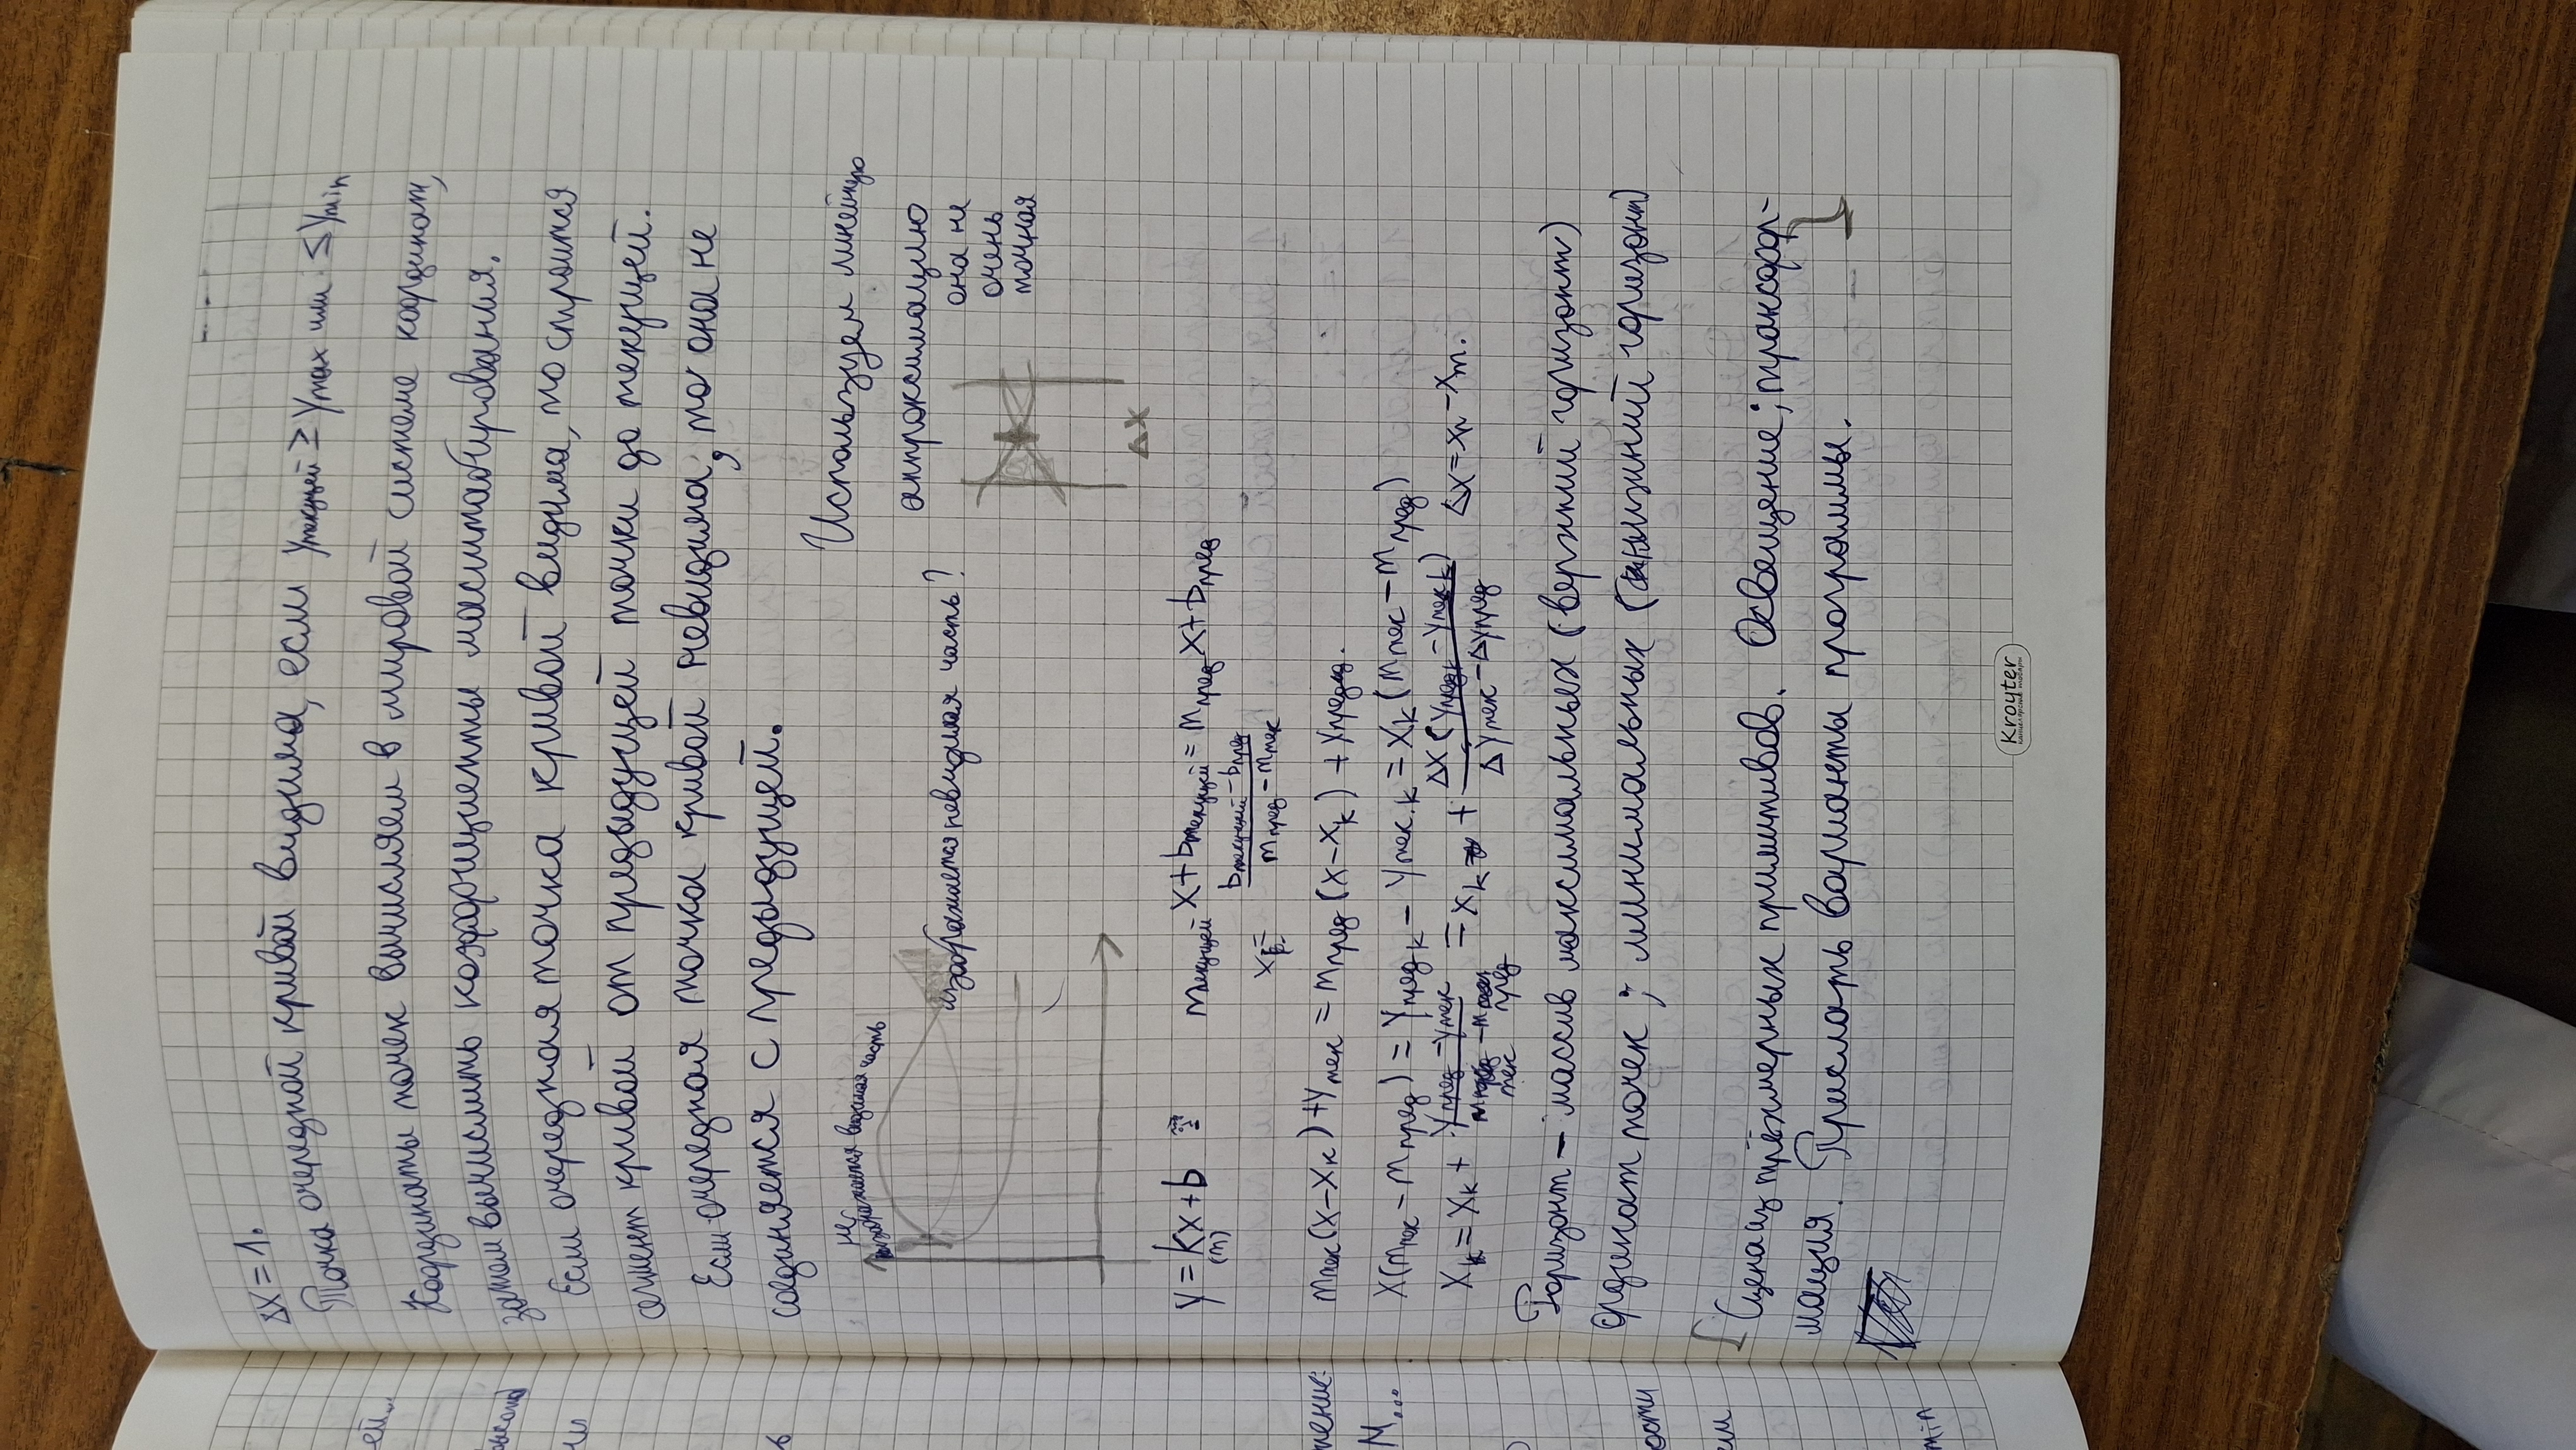 ей...
высота
ΔX = 1.
Точка очередной кривой видима, если yтекущей ≥ ymax или ≤ ymin
Координаты точек вычисляем в мировой системе координат,
затем вычислить коэффициенты масштабирования.
Если очередная точка кривой видима, то строится
сегмент кривой от предыдущей точки до текущей.
Если очередная точка кривой невидима, то она не
соединяется с предыдущей.
не
изображается видимая часть
изображается невидимая часть?
Используем линейную
аппроксимацию
она не
очень
точная
ΔX
y = kx + b
(m)
mтекущей x + bтекущей = mпред x + bпред
x = (bтекущий − bпред) / (mпред − mтек)
mтек(x − xk) + yтек = mпред(x − xk) + yпред.
x(mтек − mпред) = yпред k − yтек.k = xk(mтек − mпред)
xk = xk + (yпред − yтек) / (mтек − mпред) = xk + Δx(yпред k − yтек k) / (Δyтек − Δyпред) Δx = xn − xm.
Горизонт – массив максимальных (верхний горизонт)
ординат точек; минимальных (нижний горизонт)
[Сцена из трёхмерных примитивов. Освещение; трансфор-
мация. Прислать варианты программы.]
M...
ости
min
Kroyter
канцелярские товары